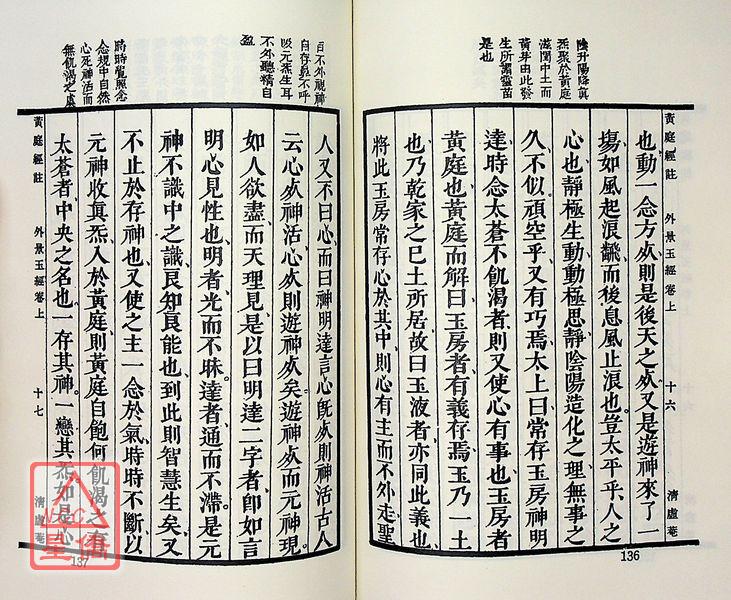 陰升陽降眞
炁聚於黃庭
滋閏中土而
黃芽由此發
生所謂靈苗
是也
黃庭經註　外景玉經卷上　十六　清虛菴
也動一念方㱙則是後天之㱙又是遊神來了一
塲如風起浪飜而後息風止浪也豈太平乎人之
心也靜極生動動極思靜陰陽造化之理無事之
久不似頑空乎又有巧焉太上曰常存玉房神明
達時念太蒼不飢渴者則又使心有事也玉房者
黃庭也黃庭而解曰玉房者有義存焉玉乃一土
也乃乾家之巳土所居故曰玉液者亦同此義也
將此玉房常存心於其中則心有主而不外走聖
136
目不外視神
自存鼻不呼
吸元炁生耳
不外聽精自
盈
時時覺照念
念規中自然
心死神活而
無飢渴之虞
人又不曰心而曰神明達言心旣㱙則神活古人
云心㱙神活心㱙則遊神㱙矣遊神㱙而元神現
如人欲盡而天理見是以曰明達二字者卽如言
明心見性也明者光而不昧達者通而不滯是元
神不識中之識良知良能也到此則智慧生矣又
不止於存神也又使之主一念於氣時時不斷以
元神收眞炁入於黃庭則黃庭自飽何飢渴之有
太蒼者中央之名也一存其神一戀其炁如是心
黃庭經註　外景玉經卷上　十七　清虛菴
137